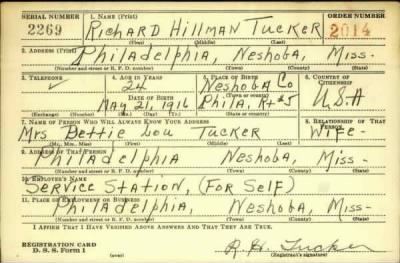 SERIAL NUMBER 1. NAME (Print) ORDER NUMBER
2269 RICHARD HILLMAN TUCKER 2014
(First) (Middle) (Last)
2. ADDRESS (Print)
Philadelphia, Neshoba, Miss-
(Number and street or R. F. D. number) (Town) (County) (State)
3. TELEPHONE 4. AGE IN YEARS 5. PLACE OF BIRTH 6. COUNTRY OF CITIZENSHIP
24 Neshoba Co
DATE OF BIRTH (Town or county)
May 21, 1916 Phila, Rt #5 U.S.A
(Exchange) (Number) (Mo.) (Day) (Yr.) (State or country)
7. NAME OF PERSON WHO WILL ALWAYS KNOW YOUR ADDRESS 8. RELATIONSHIP OF THAT PERSON
Mrs Bettie Lou Tucker Wife-
(Mr., Mrs., Miss) (First) (Middle) (Last)
9. ADDRESS OF THAT PERSON
Philadelphia Neshoba, Miss-
(Number and street or R. F. D. number) (Town) (County) (State)
10. EMPLOYER'S NAME
Service Station, (For Self)
11. PLACE OF EMPLOYMENT OR BUSINESS
Philadelphia, Neshoba, Miss-
(Number and street or R. F. D. number) (Town) (County) (State)
I AFFIRM THAT I HAVE VERIFIED ABOVE ANSWERS AND THAT THEY ARE TRUE.
REGISTRATION CARD
D. S. S. Form 1 (over) R.H. Tucker
(Registrant's signature)